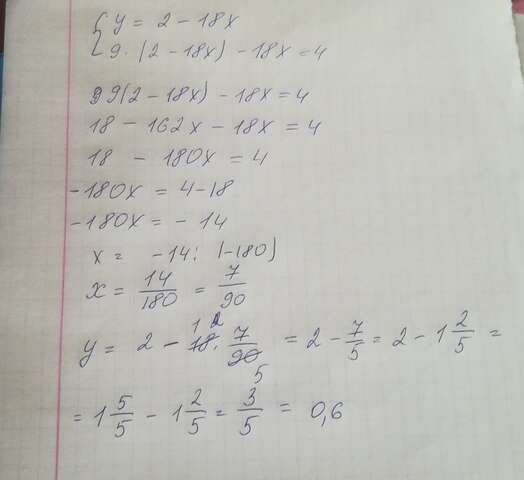 { y = 2 - 18x
9 · (2 - 18x) - 18x = 4
99(2 - 18x) - 18x = 4
18 - 162x - 18x = 4
18 - 180x = 4
-180x = 4 - 18
-180x = - 14
x = -14 : (-180)
x = 14/180 = 7/90
y = 2 - 18 1 2 · 7/90 5 = 2 - 7/5 = 2 - 1 2/5 =
= 1 5/5 - 1 2/5 = 3/5 = 0,6